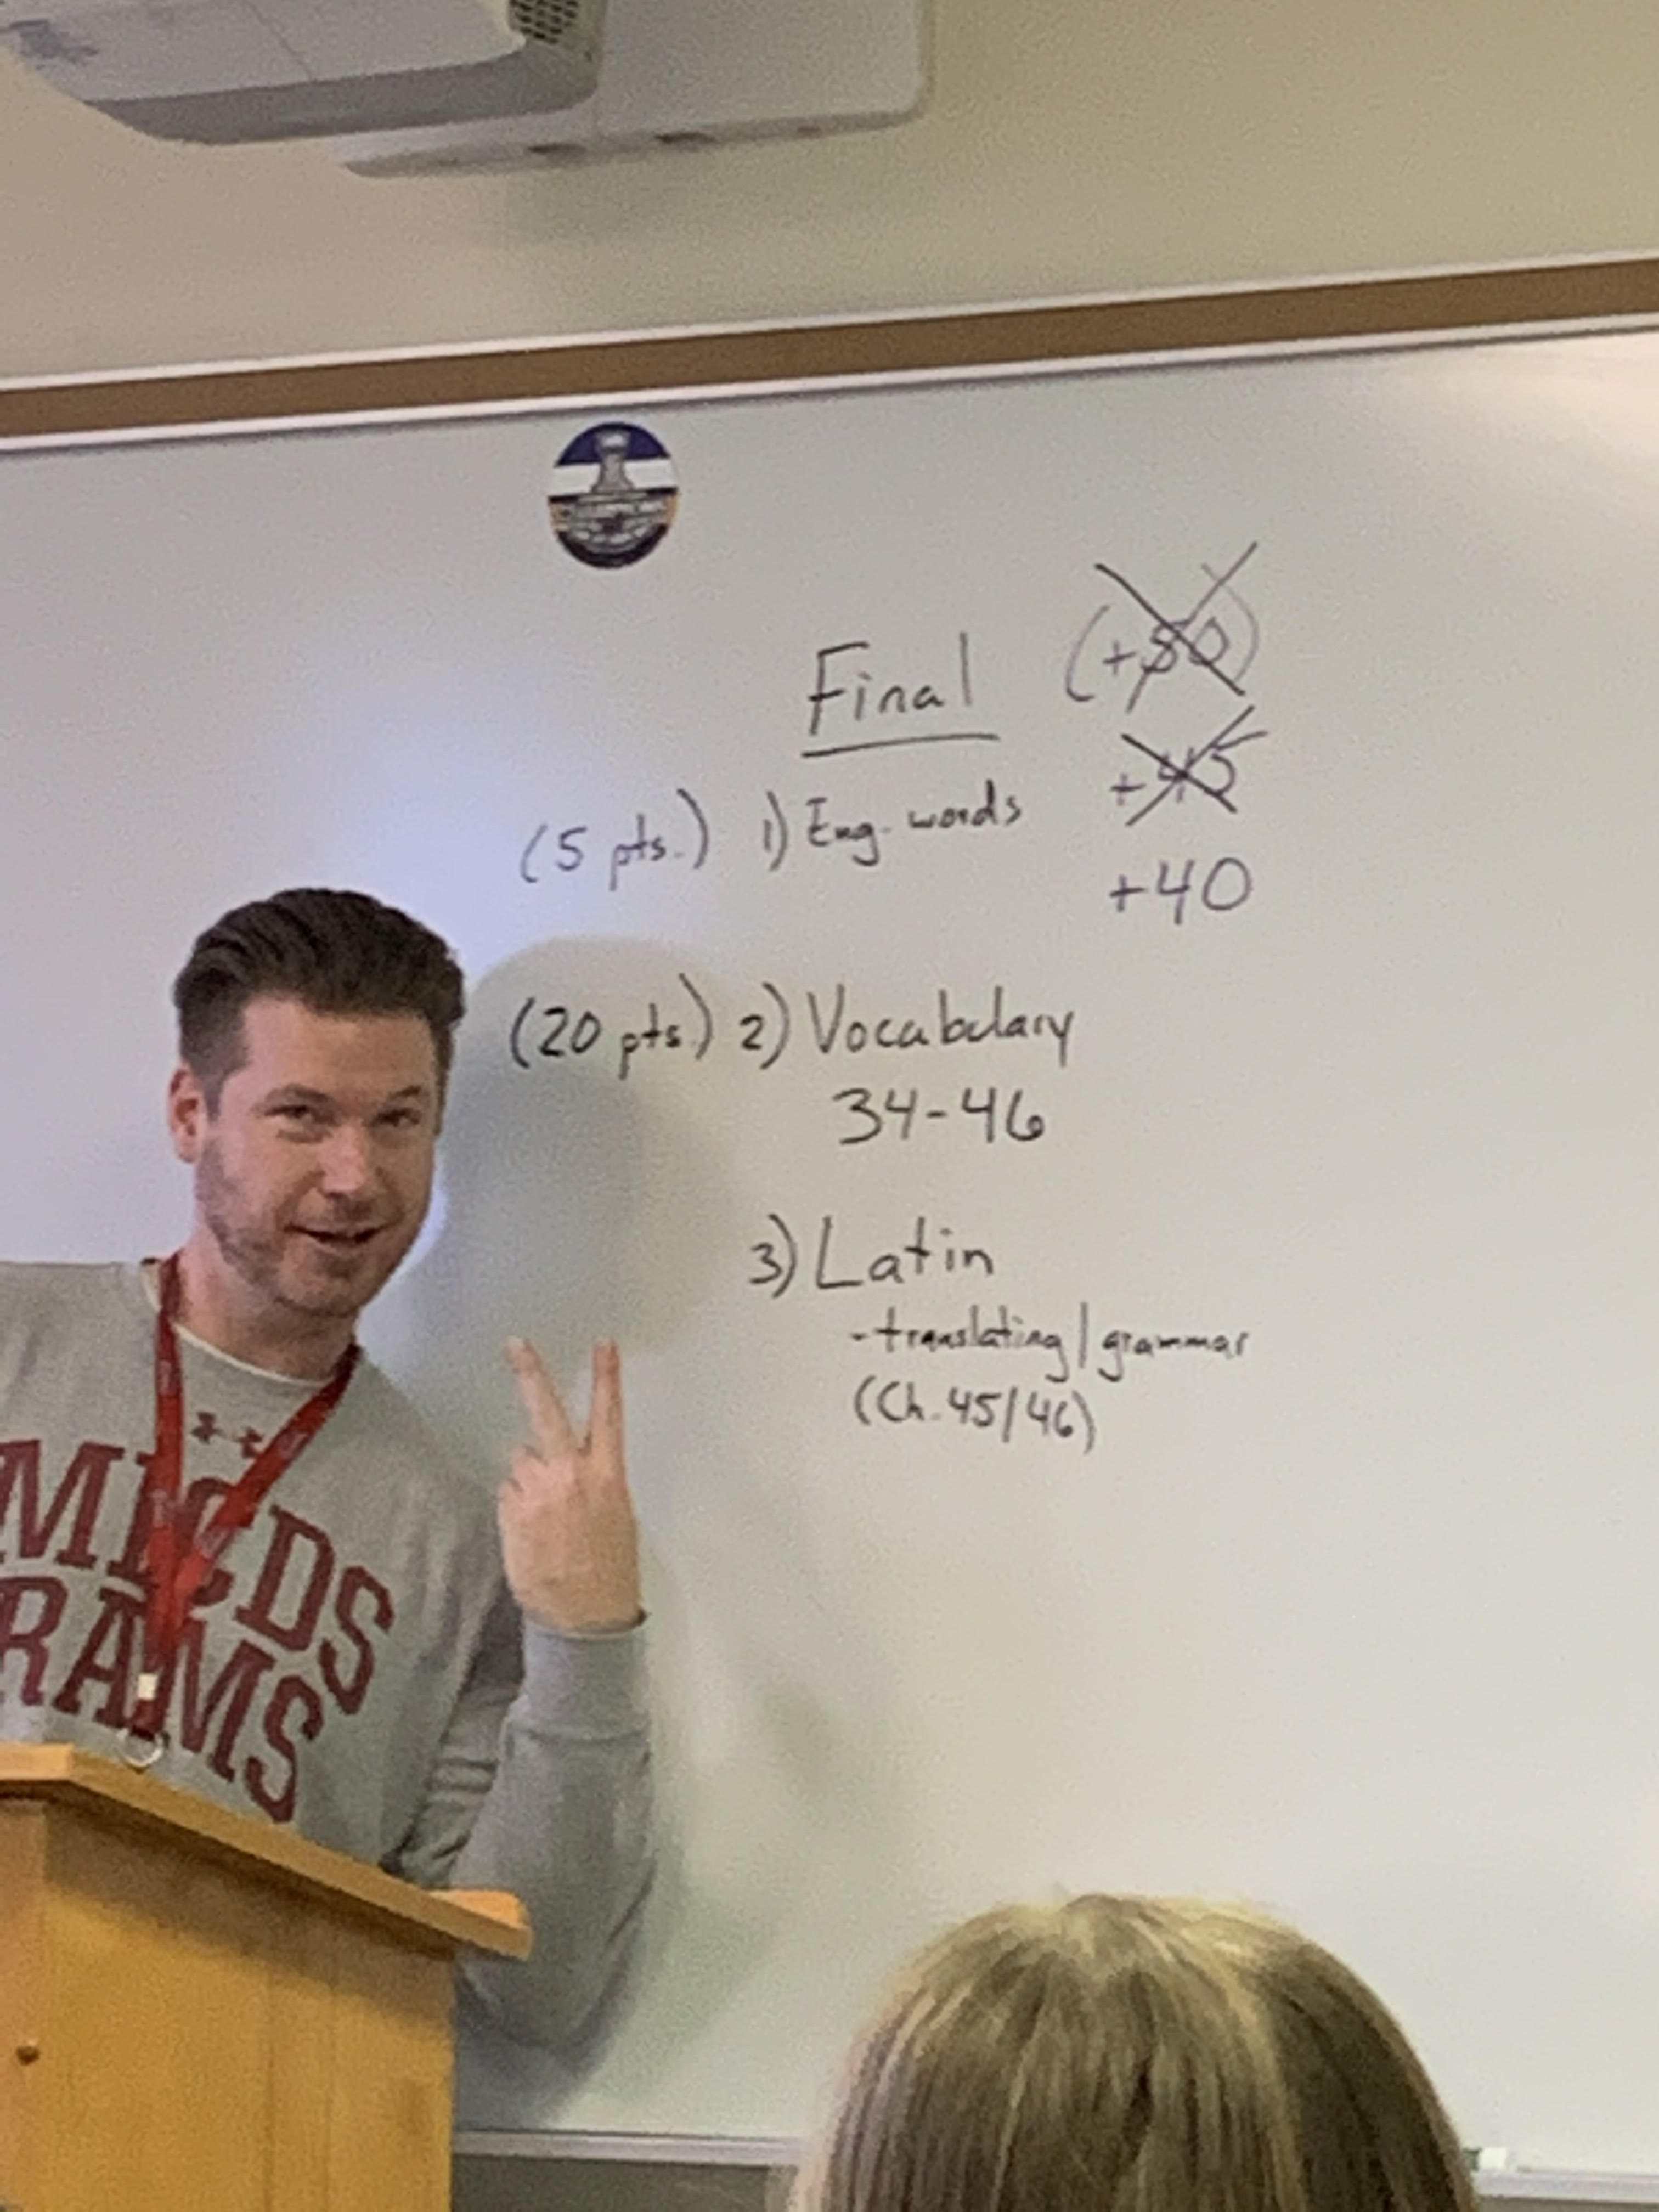 Final (+50)
+45
(5 pts.) 1) Eng. words
+40
(20 pts.) 2) Vocabulary
34-46
3) Latin
-translating/grammar
(Ch. 45/46)
MICDS
RAMS